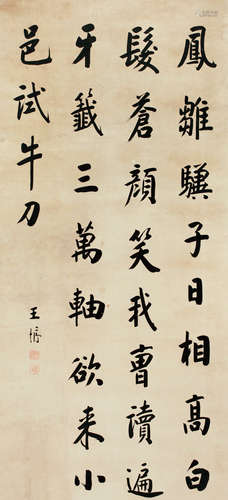 鳳雛驥子日相高白
髮蒼顏笑我曹讀遍
牙籤三萬軸欲来小
邑試牛刀
王憘